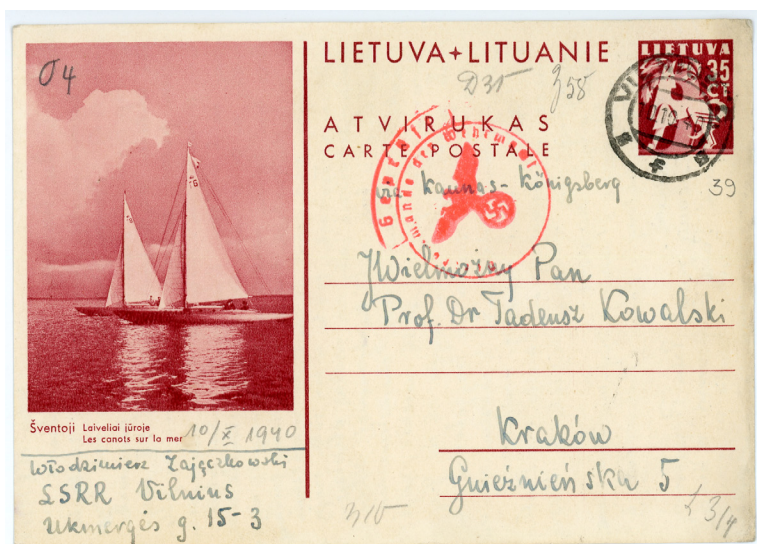 LIETUVA+LITUANIE
LIETUVA
35
CT
σ4
D35
Z58
ATVIRUKAS
CARTE POSTALE
39
via Kaunas-Königsberg
JWielmożny Pan
Prof. Dr Tadeusz Kowalski
Kraków
Gnieźnieńska 5
Šventoji Laiveliai jūroje
Les canots sur la mer
10/X 1940
Włodzimierz Zajączkowski
LSRR Vilnius
Ukmergės g. 15-3